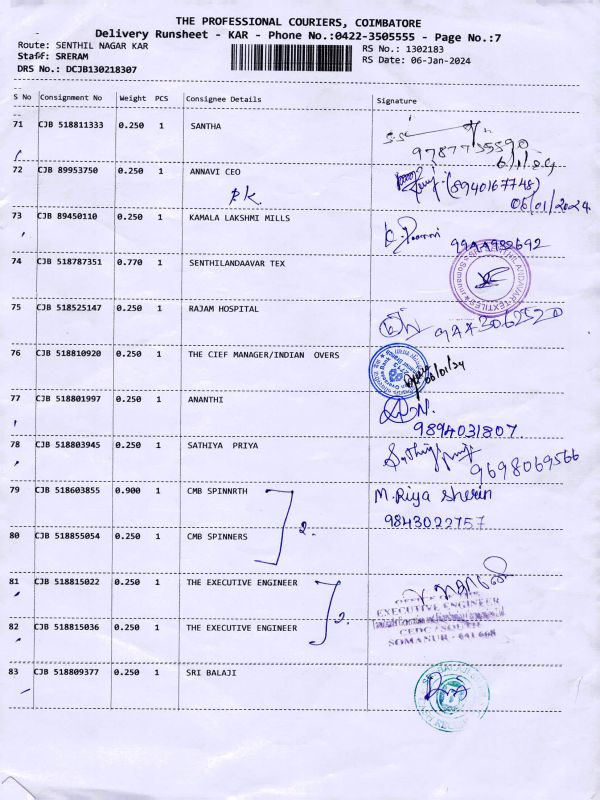 THE PROFESSIONAL COURIERS, COIMBATORE
Delivery Runsheet - KAR - Phone No.:0422-3505555 - Page No.:7
Route: SENTHIL NAGAR KAR
Staff: SRERAM
DRS No.: DCJB130218307
RS No.: 1302183
RS Date: 06-Jan-2024
S No Consignment No Weight PCS Consignee Details Signature
71 CJB 518811333 0.250 1 SANTHA
9787735590
6/1/24
72 CJB 89953750 0.250 1 ANNAVI CEO (8940167748)
P.K. 06/01/2024
73 CJB 89450110 0.250 1 KAMALA LAKSHMI MILLS
74 CJB 518787351 0.770 1 SENTHILANDAAVAR TEX
75 CJB 518525147 0.250 1 RAJAM HOSPITAL
76 CJB 518810920 0.250 1 THE CIEF MANAGER/INDIAN OVERS
06/01/24
77 CJB 518801997 0.250 1 ANANTHI
9894031807.
78 CJB 518803945 0.250 1 SATHIYA PRIYA
9698069566
79 CJB 518603855 0.900 1 CMB SPINNRTH M. Riya Sherin
9843022757
2.
80 CJB 518855054 0.250 1 CMB SPINNERS
81 CJB 518815022 0.250 1 THE EXECUTIVE ENGINEER
EXECUTIVE ENGINEER
2.
82 CJB 518815036 0.250 1 THE EXECUTIVE ENGINEER
CEDC / SOUTH
SOMANUR - 641 668
83 CJB 518809377 0.250 1 SRI BALAJI